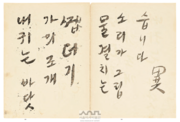 내 귀는 바닷
가의 조개
껍데기
물결치는
소리가 그립
습니다